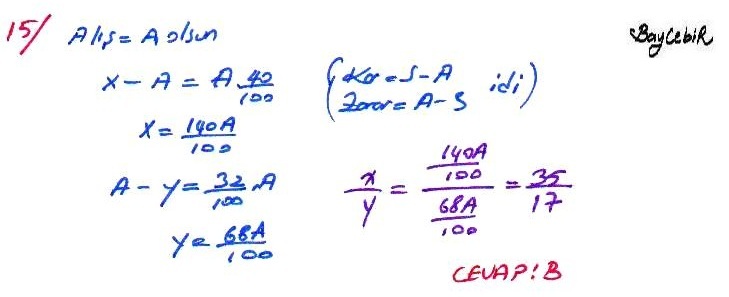 15/ Alış = A olsun
BayCebiR
X - A = A 40/100
(Kar = S - A
Zarar = A - S idi)
X = 140A/100
A - y = 32/100 . A
y = 68A/100
x/y = (140A/100)/(68A/100) = 35/17
CEVAP: B